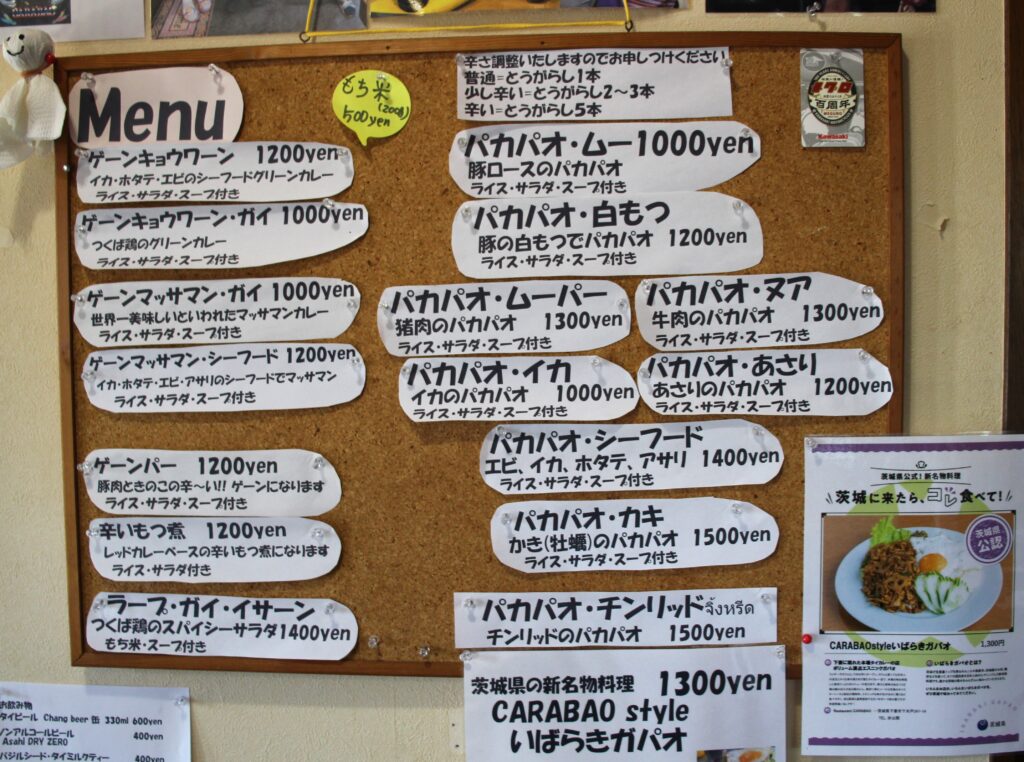 Menu
もち米
(200g)
500yen
辛さ調整いたしますのでお申しつけください
普通=とうがらし1本
少し辛い=とうがらし2～3本
辛い=とうがらし5本
百周年
Kawasaki
ゲーンキョウワーン 1200yen
イカ・ホタテ・エビのシーフードグリーンカレー
ライス・サラダ・スープ付き
ゲーンキョウワーン・ガイ 1000yen
つくば鶏のグリーンカレー
ライス・サラダ・スープ付き
ゲーンマッサマン・ガイ 1000yen
世界一美味しいといわれたマッサマンカレー
ライス・サラダ・スープ付き
ゲーンマッサマン・シーフード 1200yen
イカ・ホタテ・エビ・アサリのシーフードでマッサマン
ライス・サラダ・スープ付き
ゲーンパー 1200yen
豚肉ときのこの辛～い!! ゲーンになります
ライス・サラダ・スープ付き
辛いもつ煮 1200yen
レッドカレーベースの辛いもつ煮になります
ライス・サラダ付き
ラープ・ガイ・イサーン
つくば鶏のスパイシーサラダ1400yen
もち米・スープ付き
パカパオ・ムー1000yen
豚ロースのパカパオ
ライス・サラダ・スープ付き
パカパオ・白もつ
豚の白もつでパカパオ 1200yen
ライス・サラダ・スープ付き
パカパオ・ムーパー
猪肉のパカパオ 1300yen
ライス・サラダ・スープ付き
パカパオ・ヌア
牛肉のパカパオ 1300yen
ライス・サラダ・スープ付き
パカパオ・イカ
イカのパカパオ 1000yen
ライス・サラダ・スープ付き
パカパオ・あさり
あさりのパカパオ 1200yen
ライス・サラダ・スープ付き
パカパオ・シーフード
エビ、イカ、ホタテ、アサリ 1400yen
ライス・サラダ・スープ付き
パカパオ・カキ
かき(牡蠣)のパカパオ 1500yen
ライス・サラダ・スープ付き
パカパオ・チンリッドจิ้งหรีด
チンリッドのパカパオ 1500yen
茨城県の新名物料理 1300yen
CARABAO style
いばらきガパオ
茨城県公式!新名物料理
茨城に来たら、コレ食べて!
茨城県
公認
CARABAOstyleいばらきガパオ 1,300円
いばらきガパオとは?
IBARAKI GAPAO
茨城県
お飲み物
タイビール Chang beer 缶 330ml 600yen
ノンアルコールビール 400yen
Asahi DRY ZERO
バジルシード・タイミルクティー 400yen